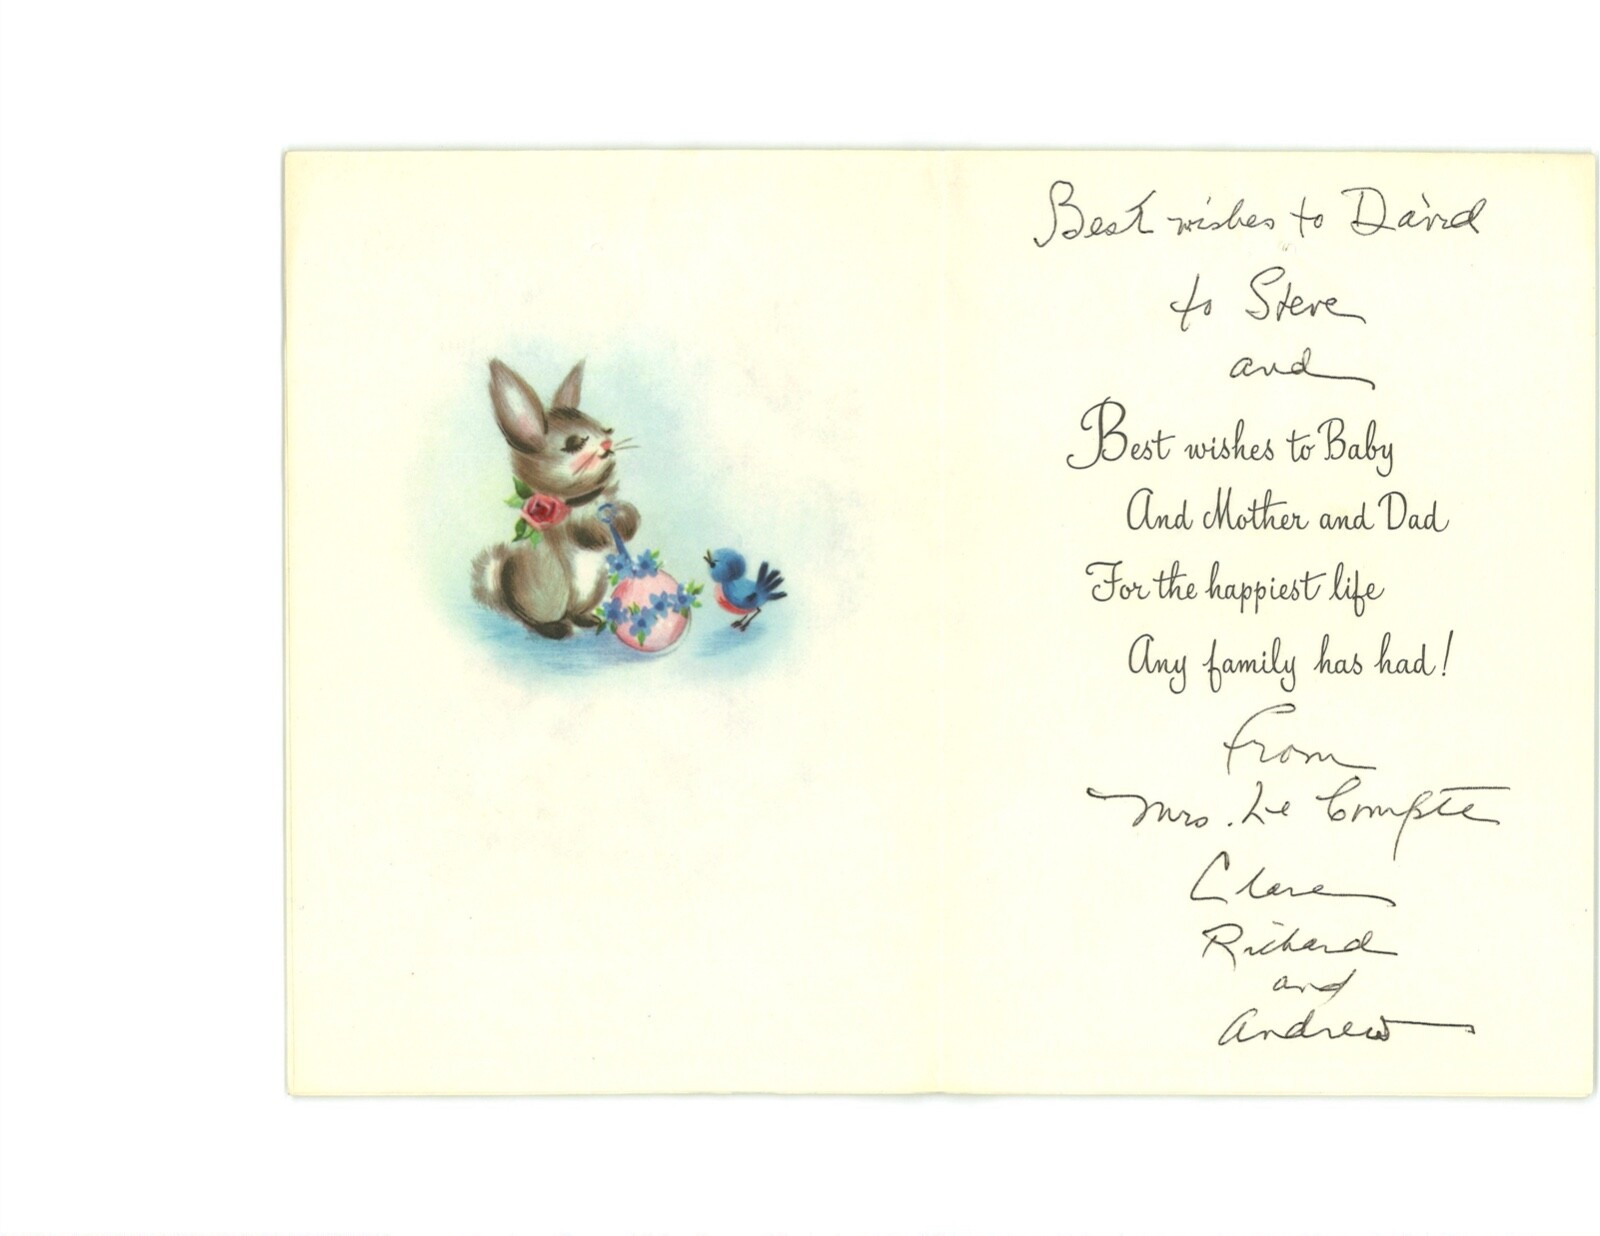 Best wishes to David
to Steve
and
Best wishes to Baby
And Mother and Dad
For the happiest life
Any family has had!
From
Mrs. Le Compte
Clare
Richard
and
Andrew